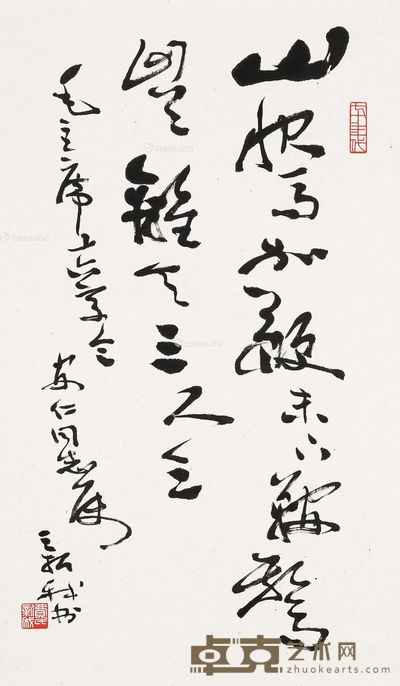 山快马加鞭未下鞍驚
回首離天三尺三
毛主席十六字令
安仁同志属
卓克艺术网
zhuokearts.com